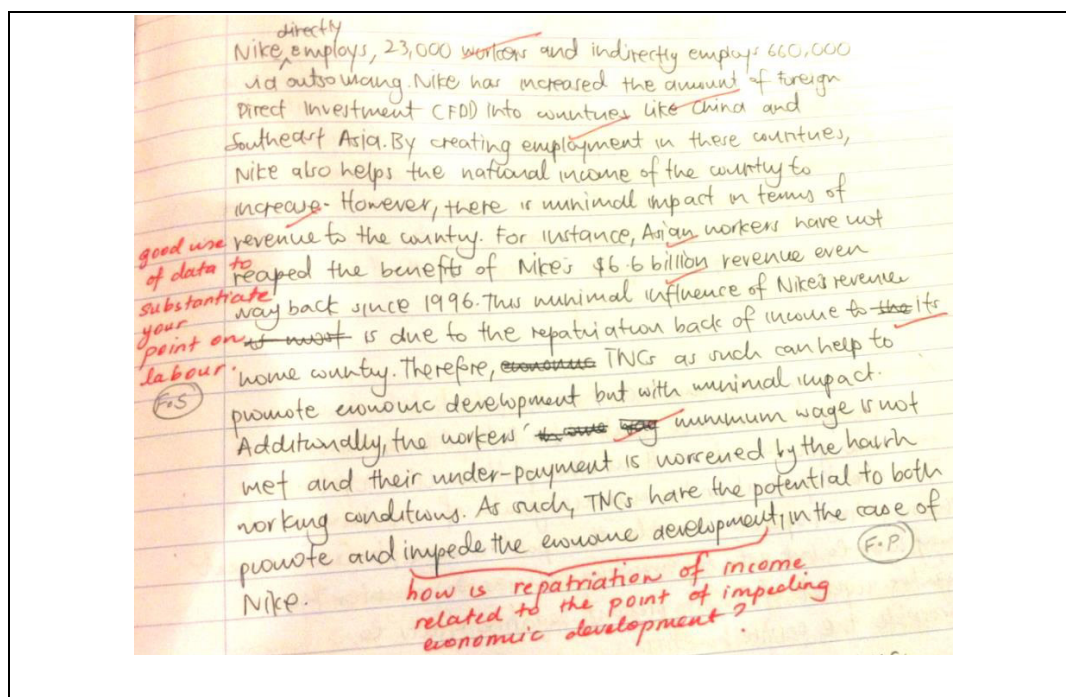 directly
Nike employs, 23,000 workers and indirectly employs 660,000
via outsourcing. Nike has increased the amount of Foreign
Direct Investment (FDI) into countries like China and
Southeast Asia. By creating employment in these countries,
Nike also helps the national income of the country to
increase. However, there is minimal impact in terms of
revenue to the country. For instance, Asian workers have not
reaped the benefits of Nike's $6.6 billion revenue even
way back since 1996. This minimal influence of Nike's revenue
is due to the repatriation back of income to the its
home country. Therefore, economic TNCs as such can help to
promote economic development but with minimal impact.
Additionally, the workers' minimum wage is not
met and their under-payment is worsened by the harsh
working conditions. As such, TNCs have the potential to both
promote and impede the economic development, in the case of
Nike.
good use
of data to
substantiate
your
point on
labour.
F.S
F.P.
how is repatriation of income
related to the point of impeding
economic development?